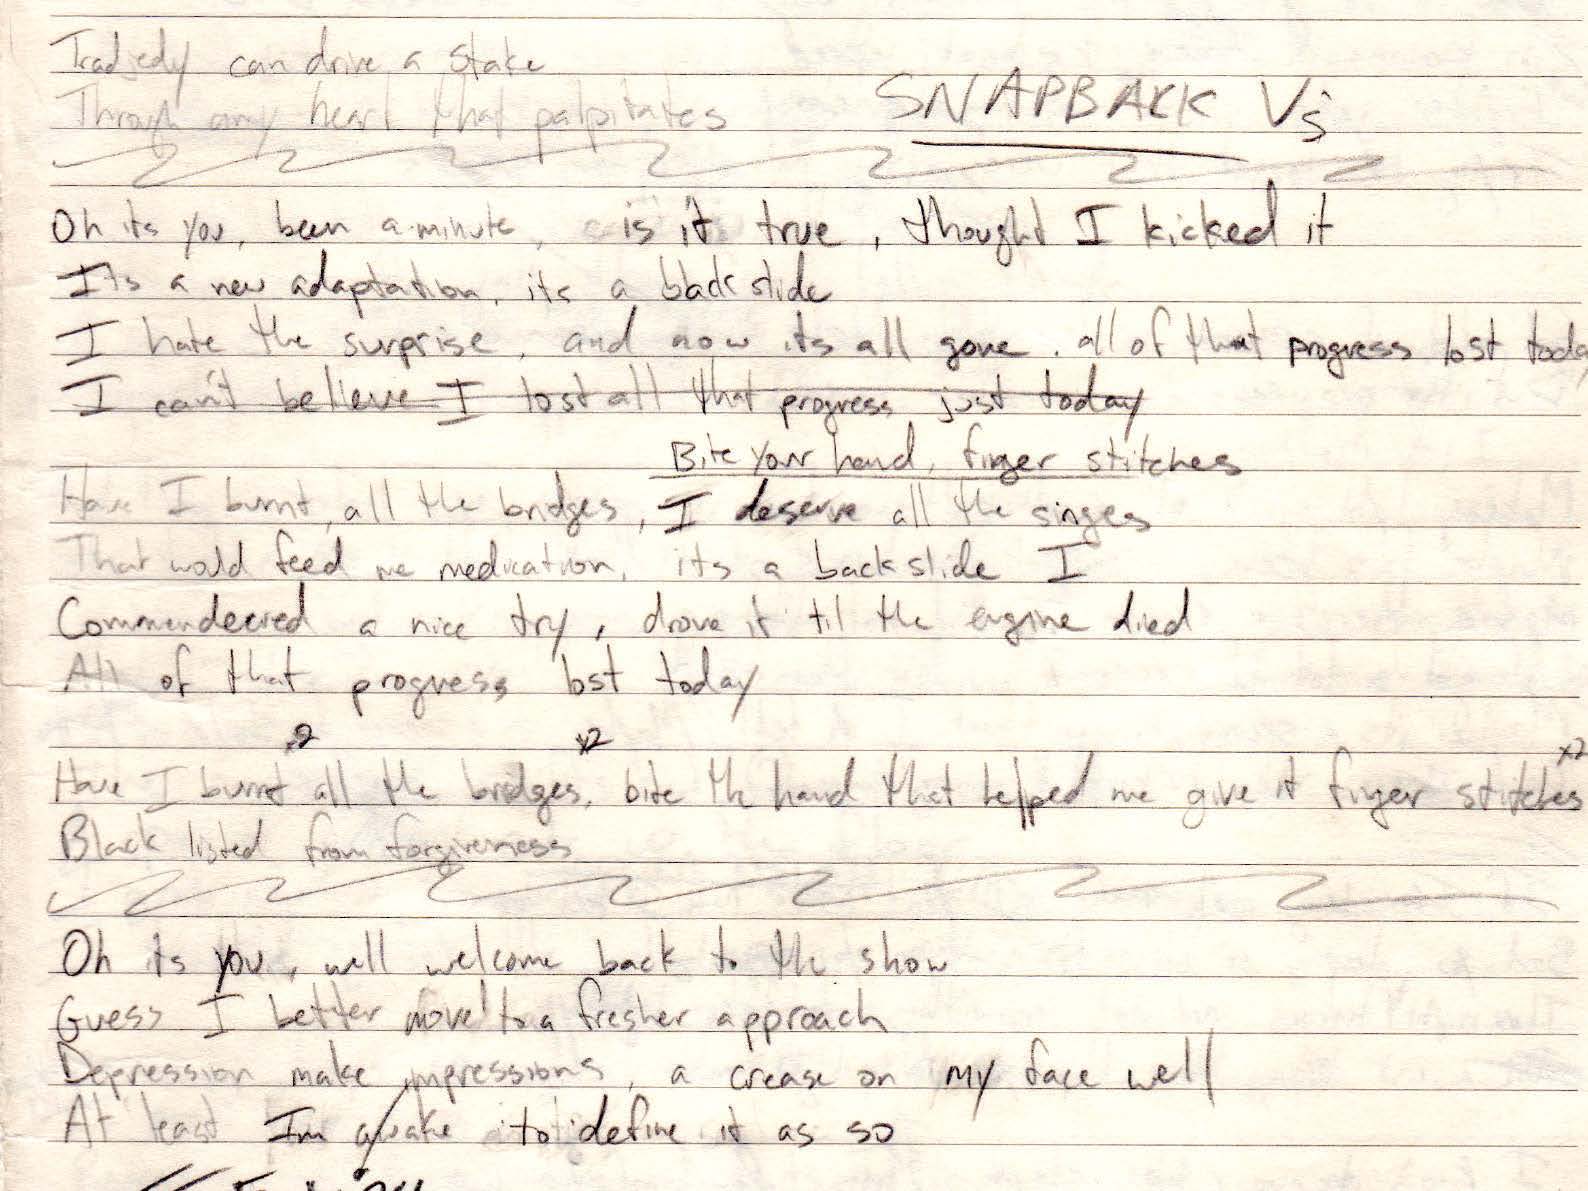 Tradjedy can drive a stake
Through my heart that palpitates
SNAPBACK Vs
Oh its you, been a minute, is it true, thought I kicked it
Its a new adaptation, its a backslide
I hate the surprise, and now its all gone. all of that progress lost today
I can't believe I lost all that progress just today
Bite your hand, finger stitches
Have I burnt, all the bridges, I deserve all the singes
That would feed me medication, its a backslide I
Commandeered a nice try, drove it til the engine died
All of that progress lost today
x2 x2 x2
Have I burnt all the bridges, bite the hand that helped me give it finger stitches
Black listed from forgiveness
Oh its you, well welcome back to the show
Guess I better move to a fresher approach
Depression make impressions, a crease on my face well
At least Im awake to define it as so